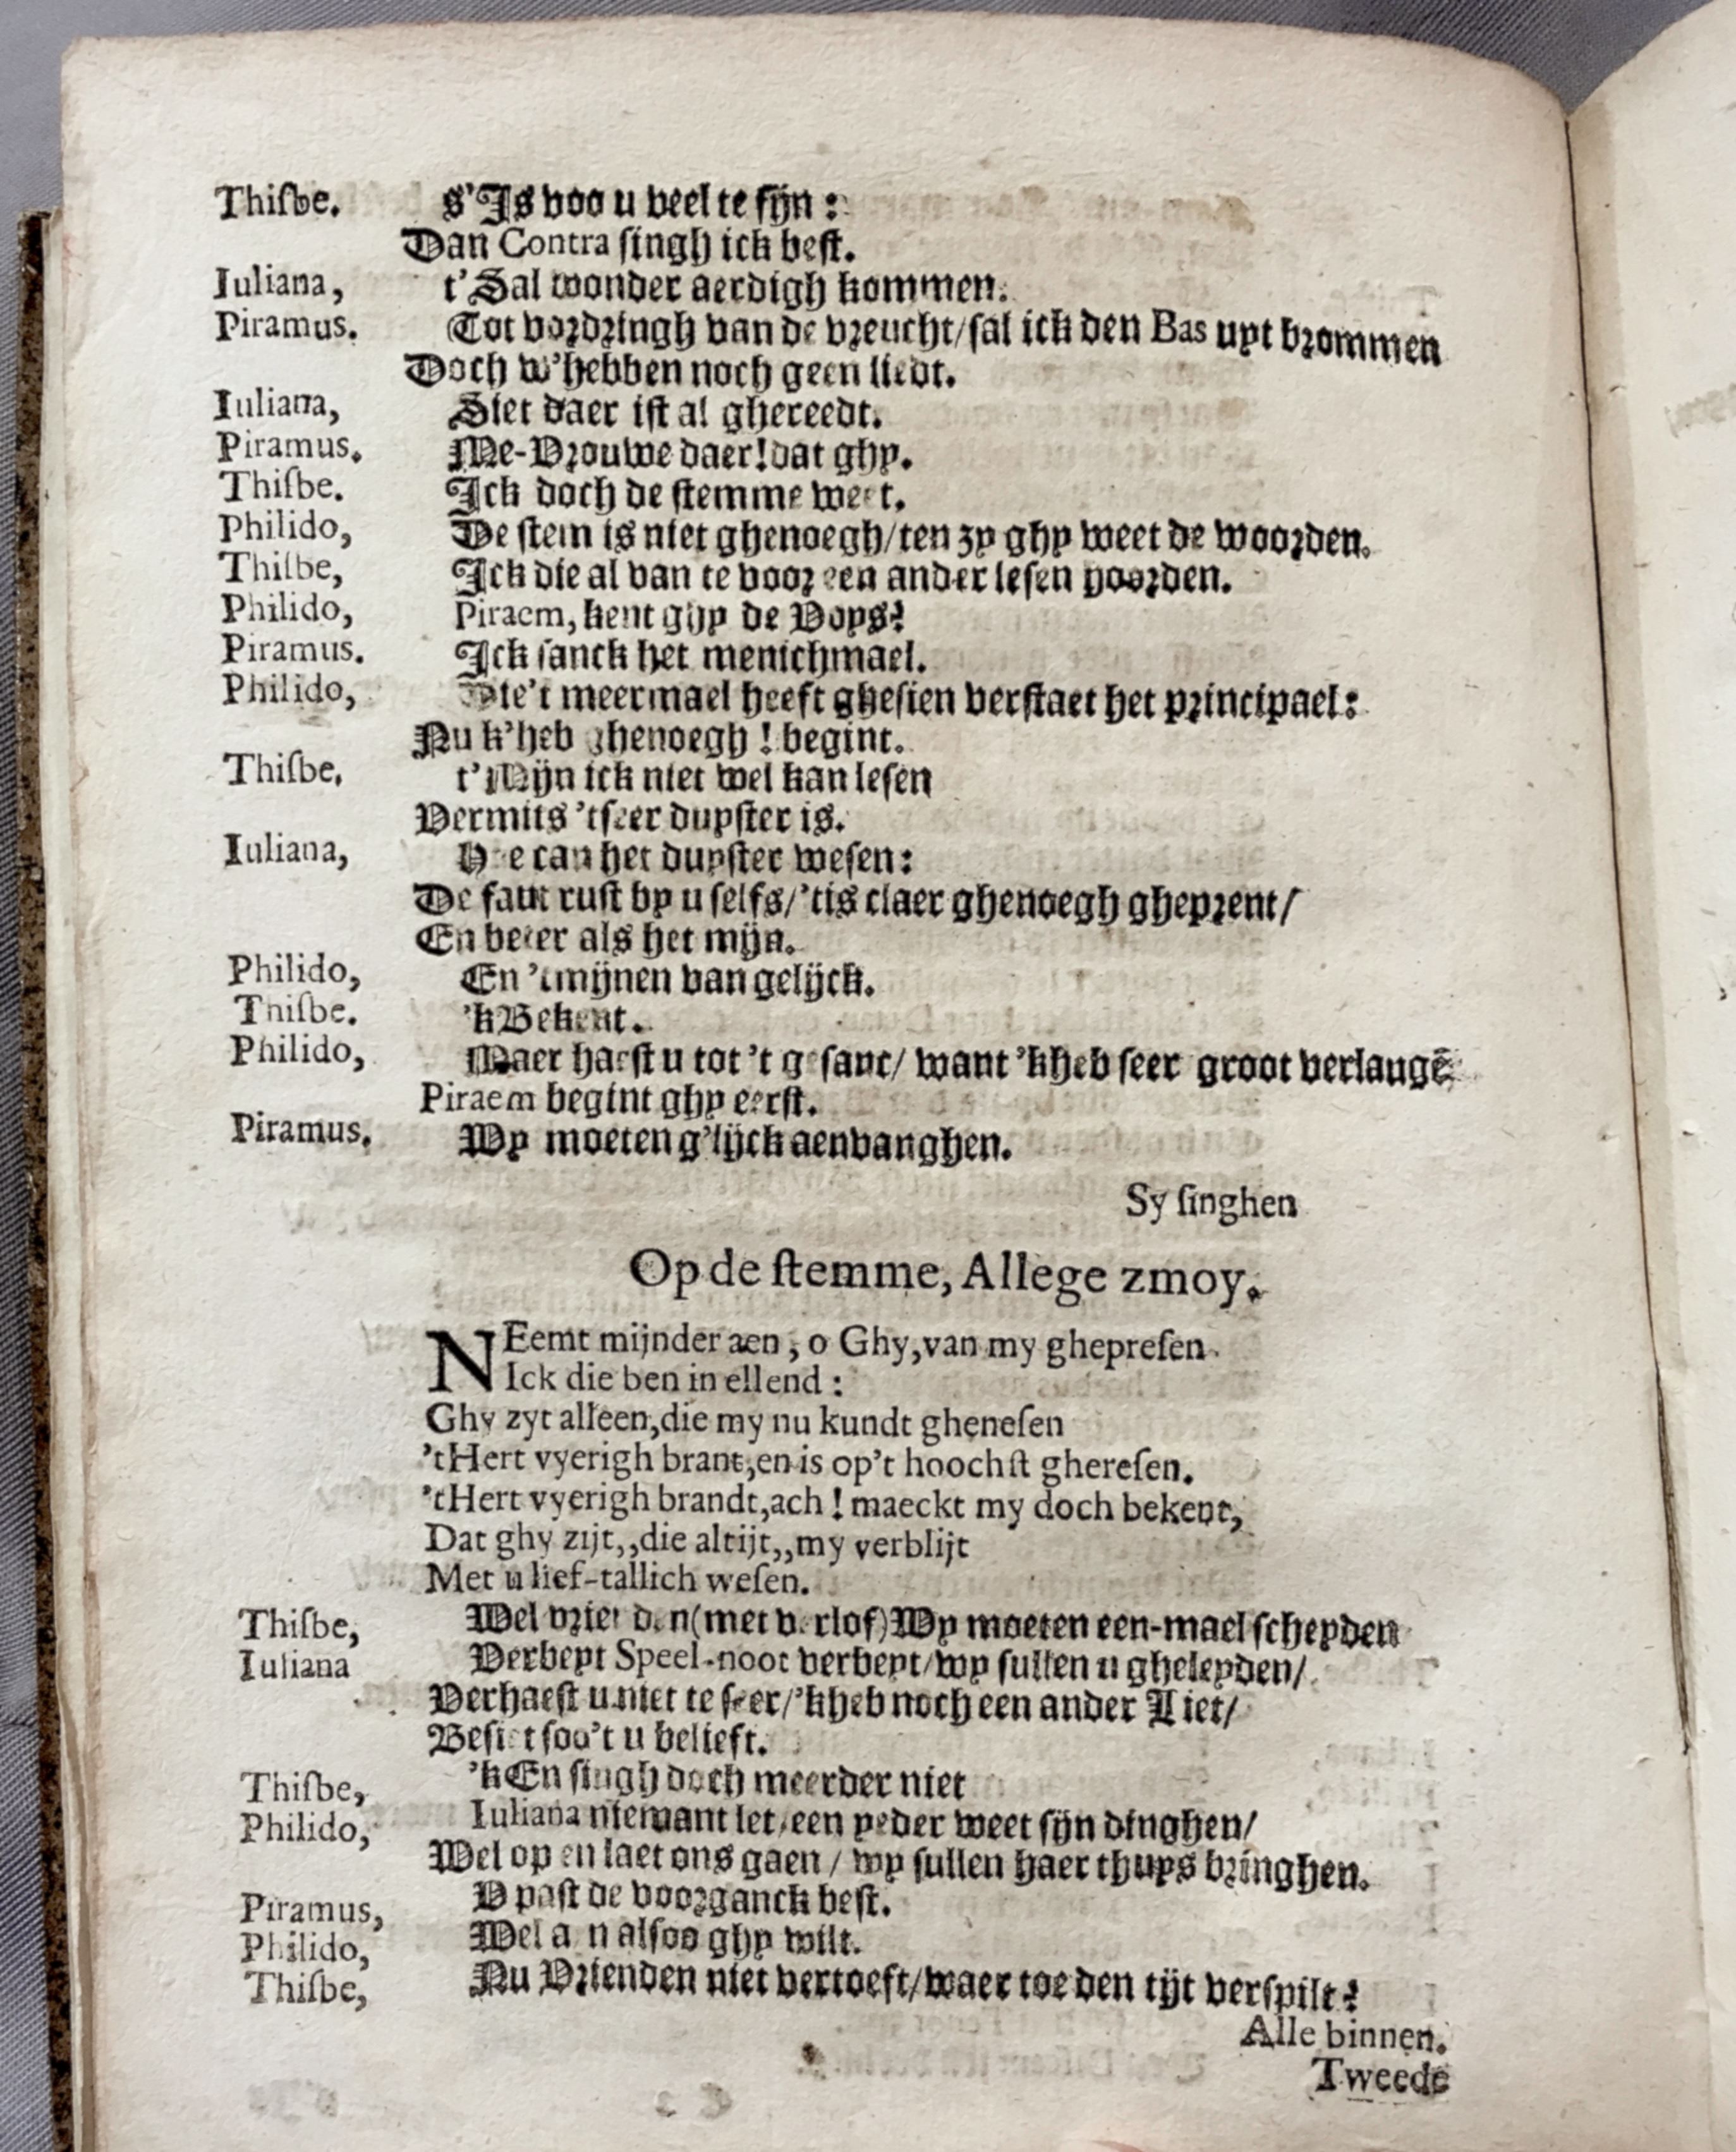 Thiſbe. s'Is voo u veel te ſijn:
Dan Contra ſingh ick beſt.
Iuliana, t'Sal wonder aerdigh kommen.
Piramus. Tot vordringh van de vreucht/ſal ick den Bas uyt brommen
Doch w'hebben noch geen liedt.
Iuliana, Siet daer iſt al ghereedt.
Piramus. Me-Vrouwe daer! dat ghy.
Thiſbe. Ick doch de ſtemme weet.
Philido, De ſtem is niet ghenoegh/ten zy ghy weet de woorden.
Thiſbe, Ick die al van te voor een ander leſen hoorden.
Philido, Piraem, kent ghy de Voys?
Piramus. Ick ſanck het menichmael.
Philido, Die't meermael heeft gheſien verſtaet het principael:
Nu k'heb ghenoegh! begint.
Thiſbe, t'Mijn ick niet wel kan leſen
Vermits 'tſeer duyſter is.
Iuliana, Hoe can het duyſter weſen:
De faut ruſt by u ſelfs/'tis claer ghenoegh gheprent/
En beter als het mijn.
Philido, En 'tmijnen van gelijck.
Thiſbe. 'kBekent.
Philido, Maer haeſt u tot 't geſant/ want 'kheb ſeer groot verlangē
Piraem begint ghy eerſt.
Piramus, Wy moeten g'lijck aenvanghen.
Sy ſinghen
Op de ſtemme, Allege zmoy.
NEemt mijnder aen, o Ghy, van my ghepreſen
Ick die ben in ellend:
Ghy zyt alleen, die my nu kundt gheneſen
'tHert vyerigh brant, en is op't hoochſt ghereſen.
'tHert vyerigh brandt, ach! maeckt my doch bekent,
Dat ghy zijt,,die altijt,,my verblijt
Met u lief-tallich weſen.
Thiſbe, Wel vrienden (met verlof) Wy moeten een-mael ſcheyden
Iuliana Verbeyt Speel-noot verbeyt/wy ſullen u gheleyden/
Verhaeſt u niet te ſeer/'kheb noch een ander Liet/
Beſiet ſoo't u belieft.
Thiſbe, 'kEn ſingh doch meerder niet
Philido, Iuliana niemant let/een yeder weet ſijn dinghen/
Wel op en laet ons gaen/ wy ſullen haer thuys bringhen.
Piramus, V paſt de voorganck beſt.
Philido, Wel aen alſoo ghy wilt.
Thiſbe, Nu Vrienden niet vertoeft/waer toe den tijt verſpilt?
Alle binnen.
Tweede